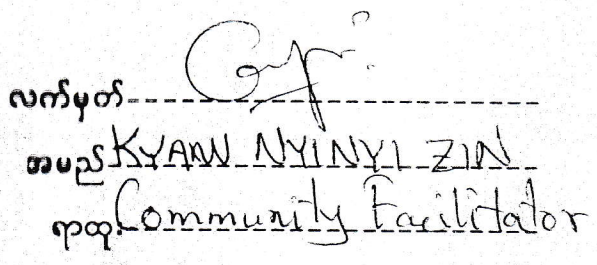 လက်မှတ်
အမည် KYAW NYI NYI ZIN
ရာထူး Community Facilitator